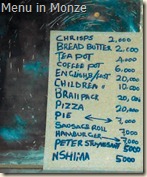 Menu in Monze
CHRISPS 2,000
BREAD BUTTER 2,000
TEA POT 4,000
COFFEE POT 6,000
ENGLISH B/FAST 20,000
CHILDREN 10,000
BRAII PACK 20,000
PIZZA 20,000
PIE 7,000
SAUSAGE ROLL 7,000
HAMBURGER 7000
PETER STUYVESANT 5000
NSHIMA 5000